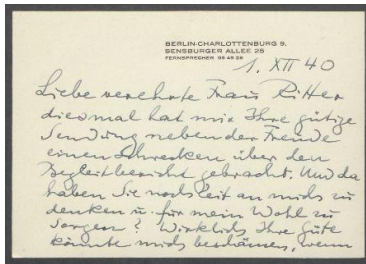 BERLIN-CHARLOTTENBURG 9,
SENSBURGER ALLEE 25
FERNSPRECHER 99 45 28
1. XII 40
Liebe verehrte Frau Ritter
diesmal hat mir Ihre gütige
Sendung neben der Freude
einen Schrecken über den
Begleitbericht gebracht. Und da
haben Sie noch Zeit an mich zu
denken u. für mein Wohl zu
sorgen? Wirklich Ihre Güte
könnte mich beschämen, wenn